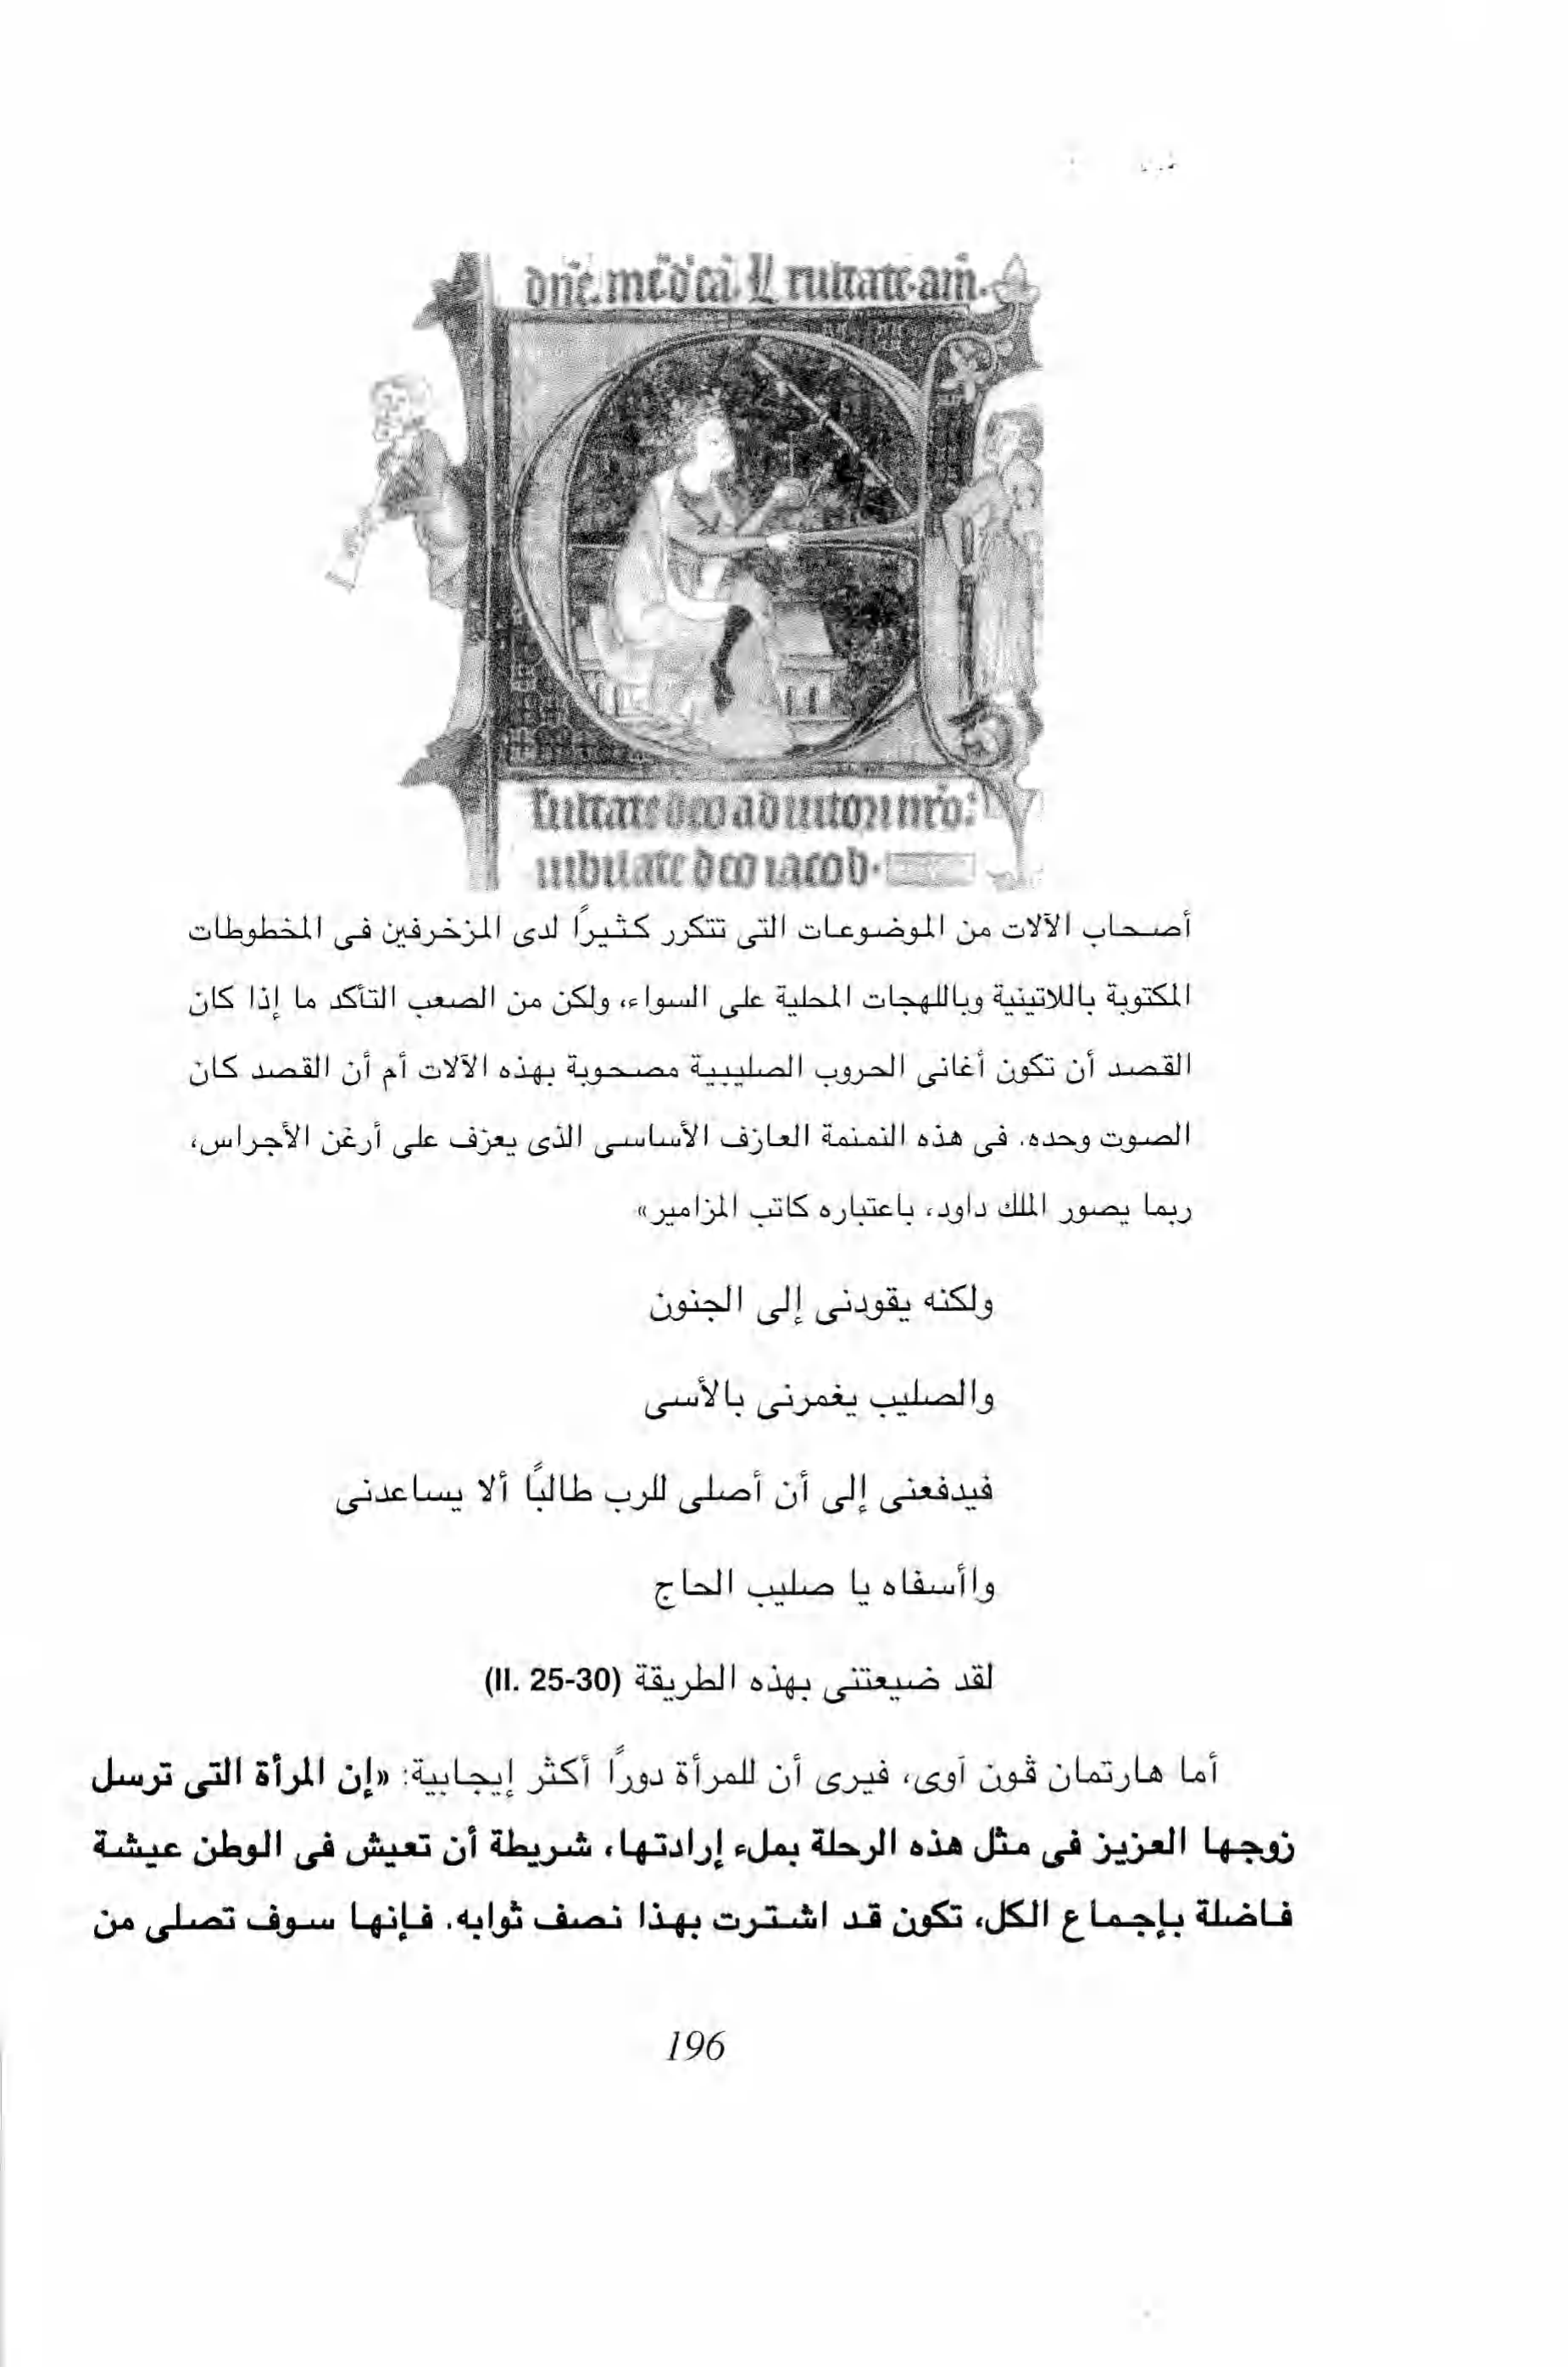 dñe. 
sultate deo adiutori nr̃o:
iubilate deo iacob.
أصحاب الآلات من الموضوعات التى تتكرر كثيراً لدى المزخرفين فى المخطوطات
المكتوبة باللاتينية وباللهجات المحلية على السواء، ولكن من الصعب التأكد ما إذا كان
القصد أن تكون أغانى الحروب الصليبية مصحوبة بهذه الآلات أم أن القصد كان
الصوت وحده. فى هذه النمنمة العازف الأساسى الذى يعزف على أرغن الأجراس،
ربما يصور الملك داود، باعتباره كاتب المزامير»
ولكنه يقودنى إلى الجنون
والصليب يغمرنى بالأسى
فيدفعنى إلى أن أصلى للرب طالبًا ألا يساعدنى
واأسفاه يا صليب الحاج
لقد ضيعتنى بهذه الطريقة (II. 25-30)
أما هارتمان ڤون آوى، فيرى أن للمرأة دورًا أكثر إيجابية: «إن المرأة التى ترسل
زوجها العزيز فى مثل هذه الرحلة بملء إرادتها، شريطة أن تعيش فى الوطن عيشة
فاضلة بإجماع الكل، تكون قد اشترت بهذا نصف ثوابه. فإنها سوف تصلى من
196